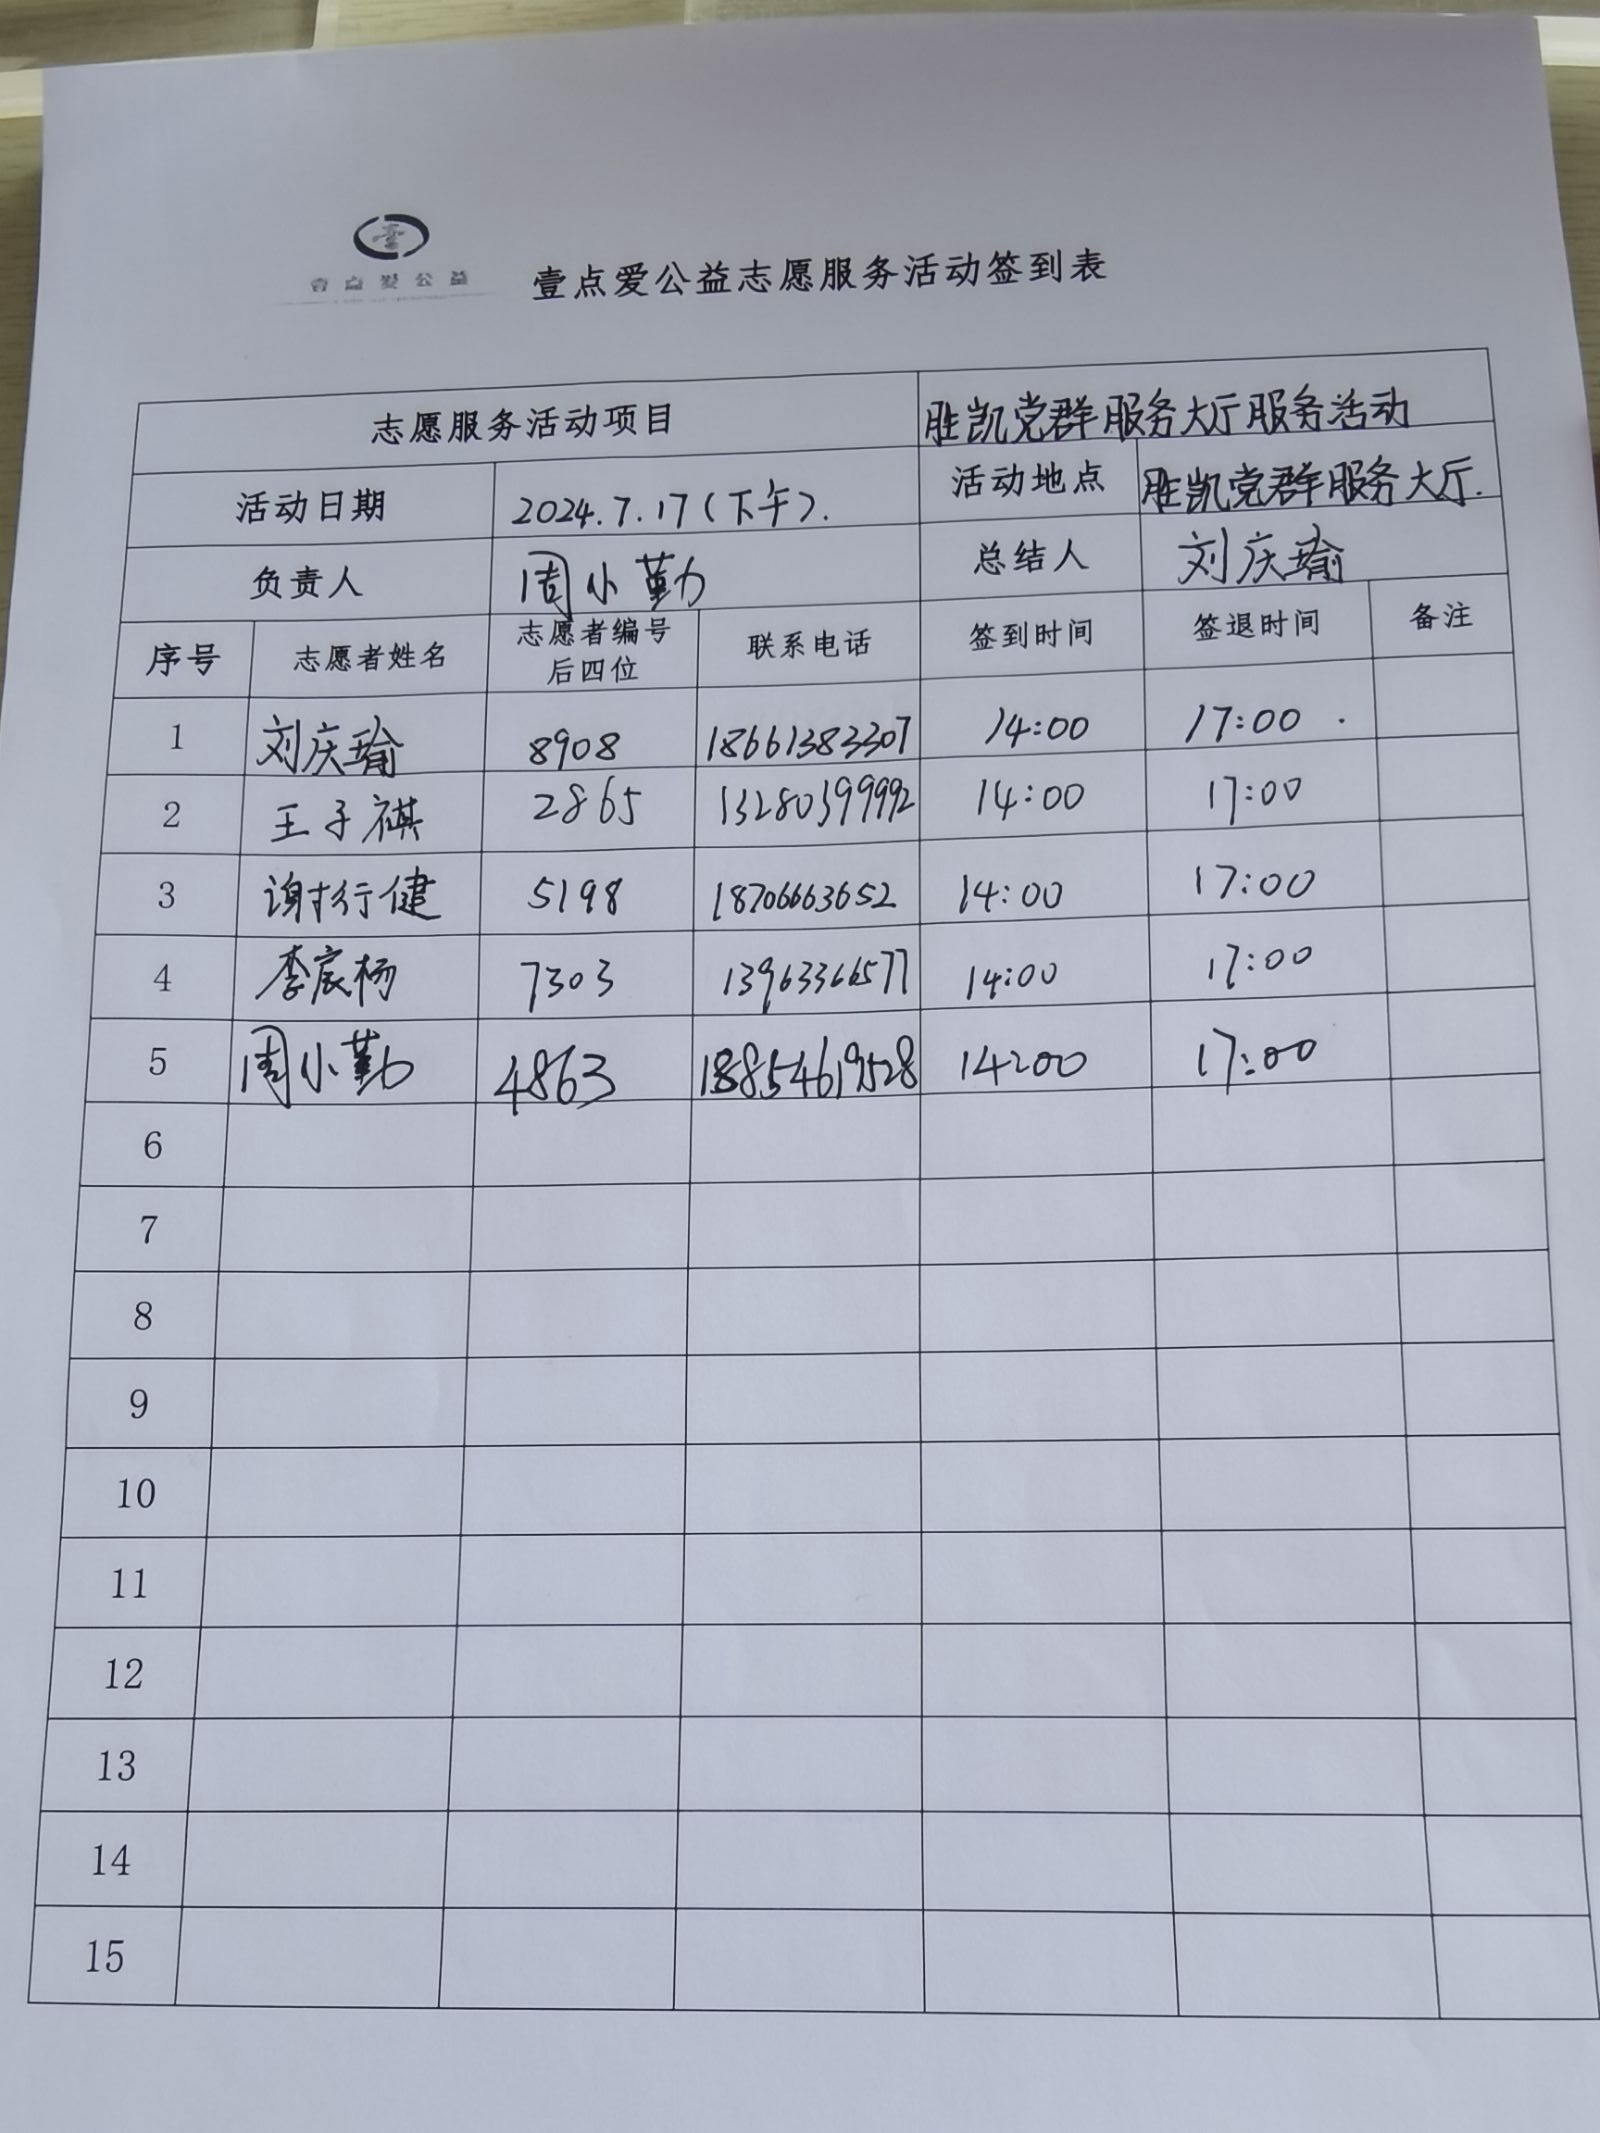 壹点爱公益
壹点爱公益志愿服务活动签到表
志愿服务活动项目 胜凯党群服务大厅服务活动
活动日期 2024.7.17(下午). 活动地点 胜凯党群服务大厅.
负责人 周小勤 总结人 刘庆瑜
序号 志愿者姓名 志愿者编号后四位 联系电话 签到时间 签退时间 备注
1 刘庆瑜 8908 18661383307 14:00 17:00
2 王子祺 2865 13280399992 14:00 17:00
3 谢行健 5198 18706663652 14:00 17:00
4 李宸杨 7303 13963366577 14:00 17:00
5 周小勤 4863 18854619528 14:00 17:00
6
7
8
9
10
11
12
13
14
15